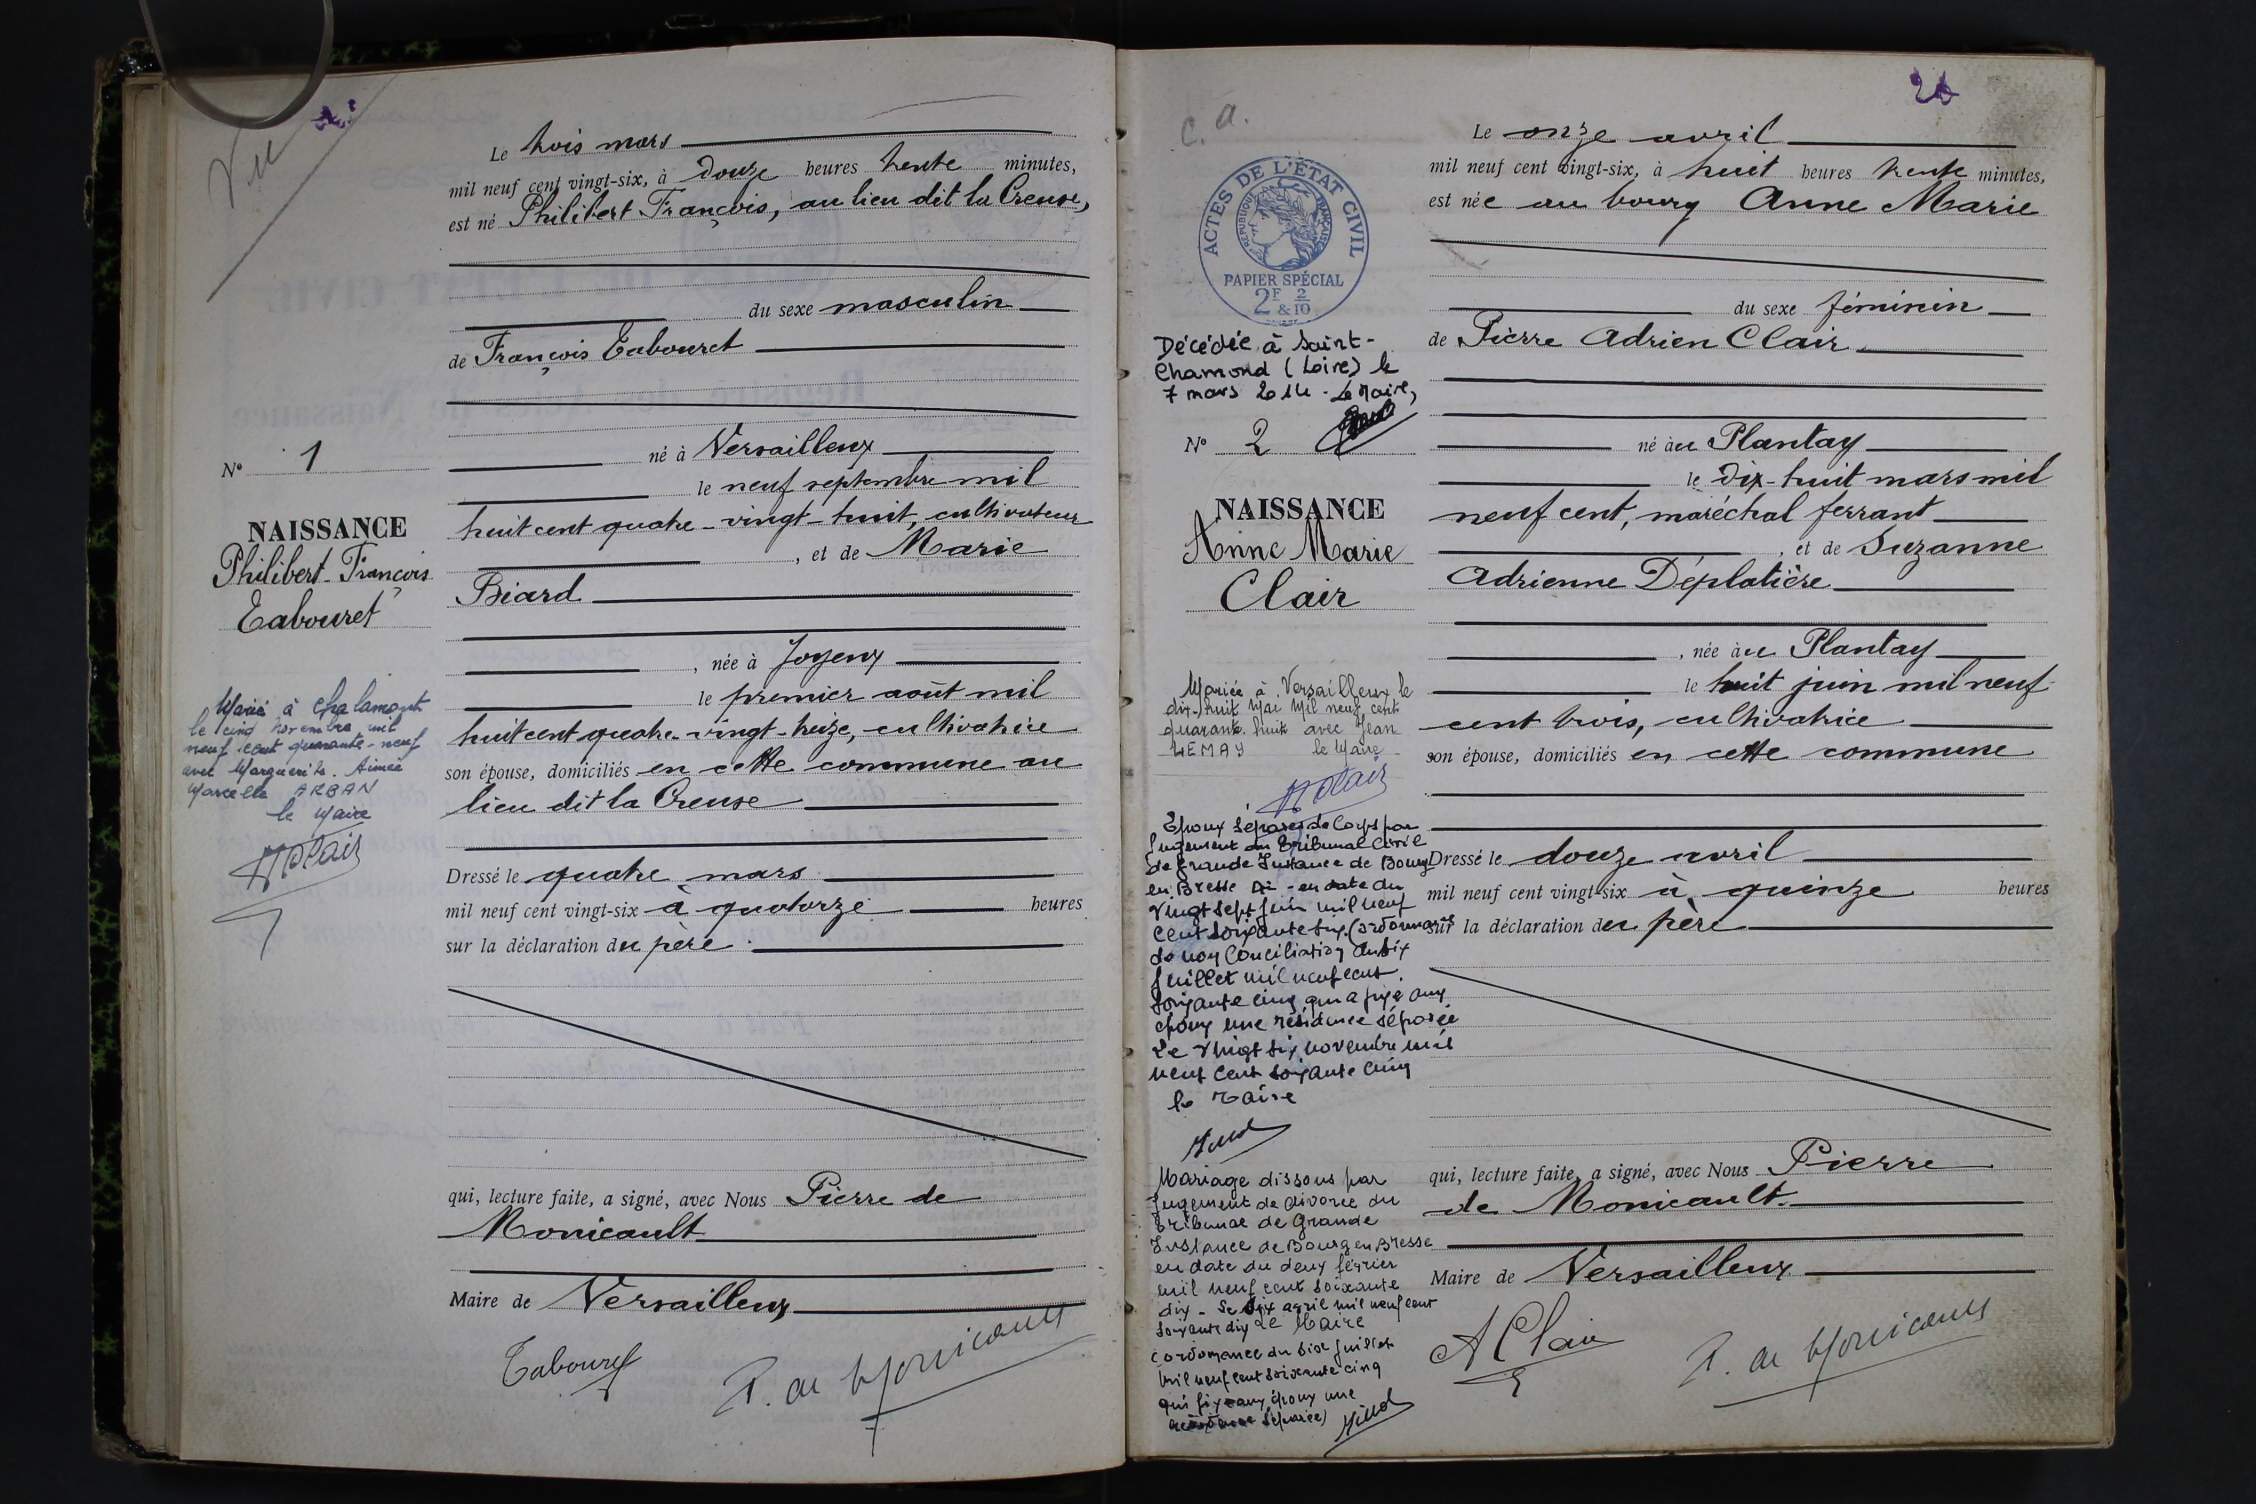 Vu
Le trois mars
mil neuf cent vingt-six, à douze heures trente minutes,
est né Philibert François, au lieu dit la Creuse,
du sexe masculin
de François Tabouret
né à Versailleux
le neuf septembre mil
huit cent quatre-vingt-huit, cultivateur
, et de Marie
Biard
, née à Joyeux
le premier août mil
huit cent quatre-vingt-treize, cultivatrice
son épouse, domiciliés en cette commune au
lieu dit la Creuse
Dressé le quatre mars
mil neuf cent vingt-six à quatorze heures
sur la déclaration du père.
qui, lecture faite, a signé, avec Nous Pierre de
Monicault
Maire de Versailleux
Tabouret
P. de Monicault
N° 1
NAISSANCE
Philibert-François
Tabouret
Marié à Chalamont
le cinq novembre mil
neuf cent quarante-neuf
avec Marguerite. Aimée
Marcelle ARBAN
le Maire
26
C. A.
ACTES DE L'ÉTAT CIVIL
RÉPUBLIQUE FRANÇAISE
PAPIER SPÉCIAL
2F & 2/10
Décédée à Saint-
Chamond (Loire) le
7 mars 2014 - Le Maire,
N° 2
NAISSANCE
Anne Marie
Clair
Mariée à Versailleux le
dix-huit Mai Mil neuf cent
quarante huit avec Jean
LEMAY le Maire
Epoux séparés de Corps par
Jugement du Tribunal Civil
de Grande Instance de Bourg
en Bresse - en date du
vingt sept Juin mil neuf
cent soixante six. (ordonnance
de non Conciliation du six
Juillet mil neuf cent
soixante cinq qui a fixé aux
époux une résidence séparée
Le vingt six novembre mil
neuf cent soixante cinq
le Maire
Mariage dissous par
Jugement de divorce du
Tribunal de Grande
Instance de Bourg en Bresse
en date du deux février
mil neuf cent soixante
dix - Le dix avril mil neuf cent
soixante dix Le Maire
(ordonnance du six Juillet
Mil neuf cent soixante cinq
qui fix aux époux une
séparée)
Le onze avril
mil neuf cent vingt-six, à huit heures trente minutes,
est née au bourg Anne Marie
du sexe féminin
de Pierre Adrien Clair
né au Plantay
le dix-huit mars mil
neuf cent, maréchal ferrant
, et de Suzanne
Adrienne Déplatière
, née au Plantay
le huit juin mil neuf
cent trois, cultivatrice
son épouse, domiciliés en cette commune
Dressé le douze avril
mil neuf cent vingt-six à quinze heures
sur la déclaration du père
qui, lecture faite, a signé, avec Nous Pierre
de Monicault.
Maire de Versailleux
A Clair
P. de Monicault